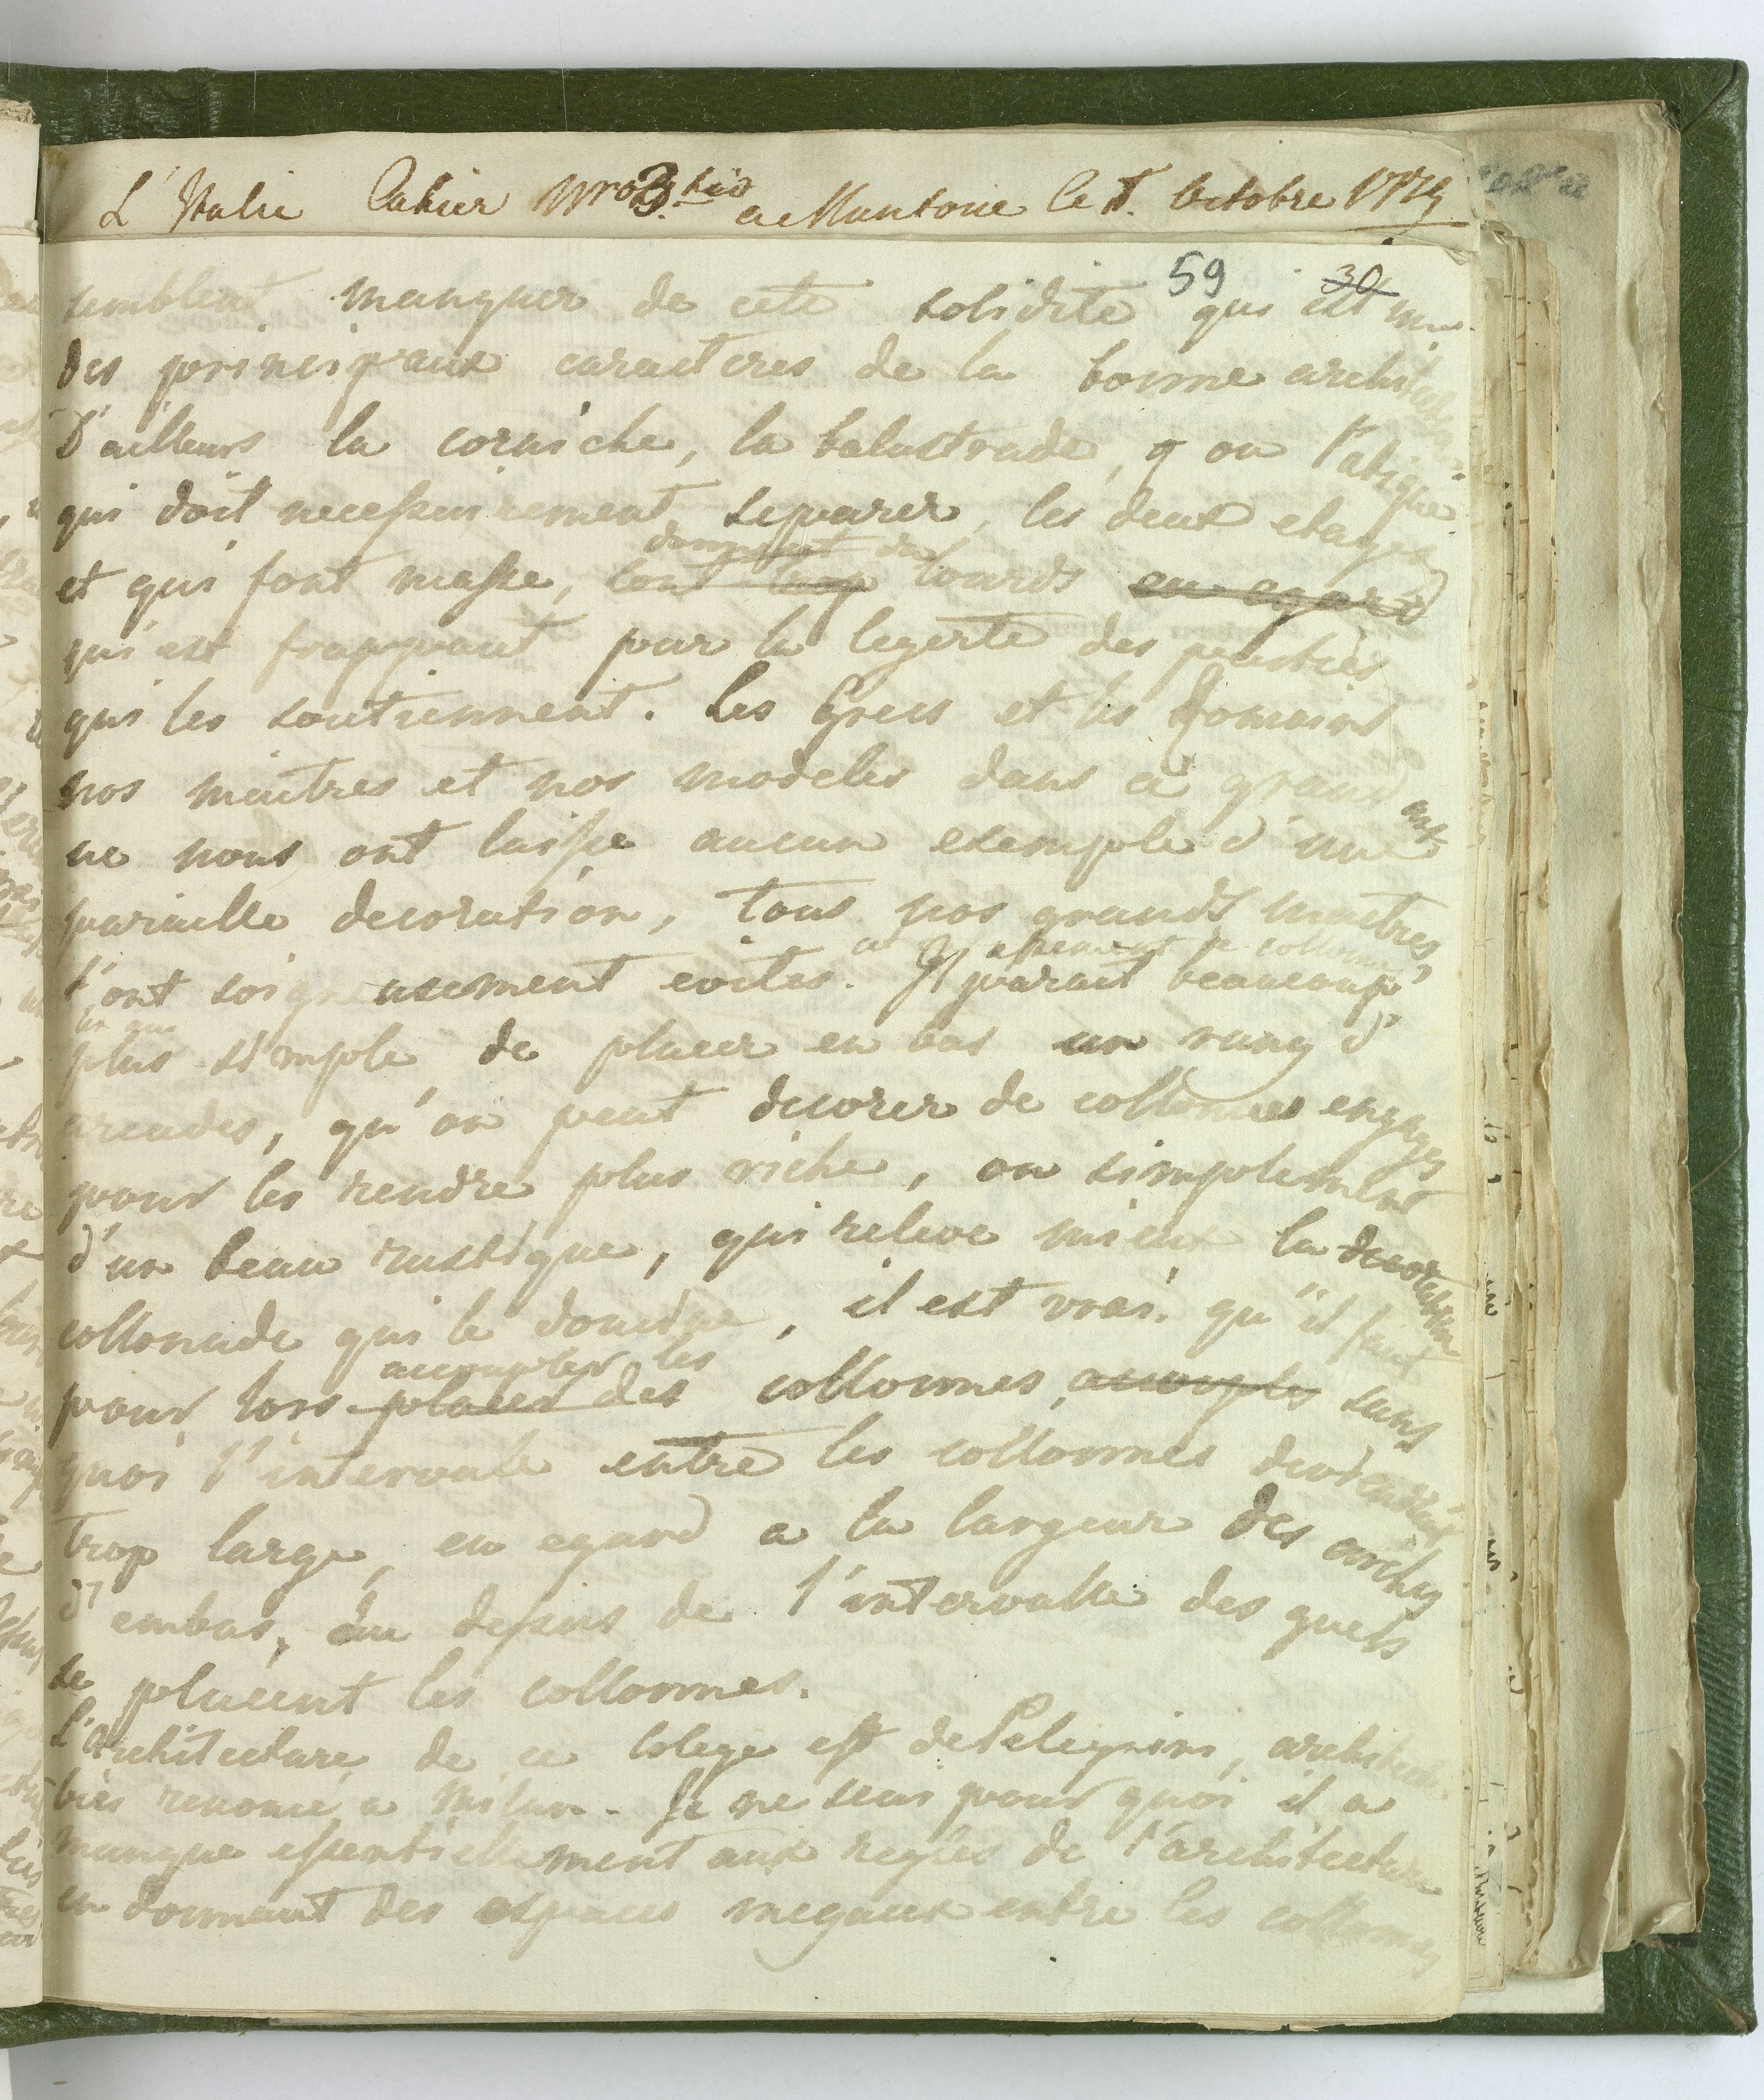 L'Italie Cahier Nro 3.tio a Mantoue le 1. Octobre 1779
59 30
semblent manquer de cete solidité qui est une
des principaux caracteres de la bonne architecture
D'ailleurs la corniche, la balustrade, ou l'atique
qui doit necessairement separer, les deux etages
et qui font masse, sont trop lourds eu egard
qui est frappant pour la legerte des
qui les soutiennent. Les Grecs et les Romains
nos maitres et nos modeles dans ce grand art
ne nous ont laisse aucun exemple d'une
pareille decoration, tous nos grands maitres
l'ont soigneusement evites. Il parait beaucoup
plus simple de placer en bas un rang d'
arcades, qu'on peut decorer de collonnes engages
pour les rendre plus riche, ou simplement
d'un beau rustique, qui releve mieux la decoration
collonade qui le domine, il est vrai qu'il faut
accoupler les
pour lors placer des collonnes accouples sans
quoi l'intervale entre les collonnes deviendrait
trop large, eu egard a la largeur des arches
d'embas, au dessus de l'intervalle des quels
se placent les collonnes.
L'Architecture de ce Colege est de Pelegrini, architecte
bien renomé a Milan. Je ne sais pour quoi il a
manque essentiellement aux regles de l'architecture
en donnant des espaces inegaux entre les collonnes